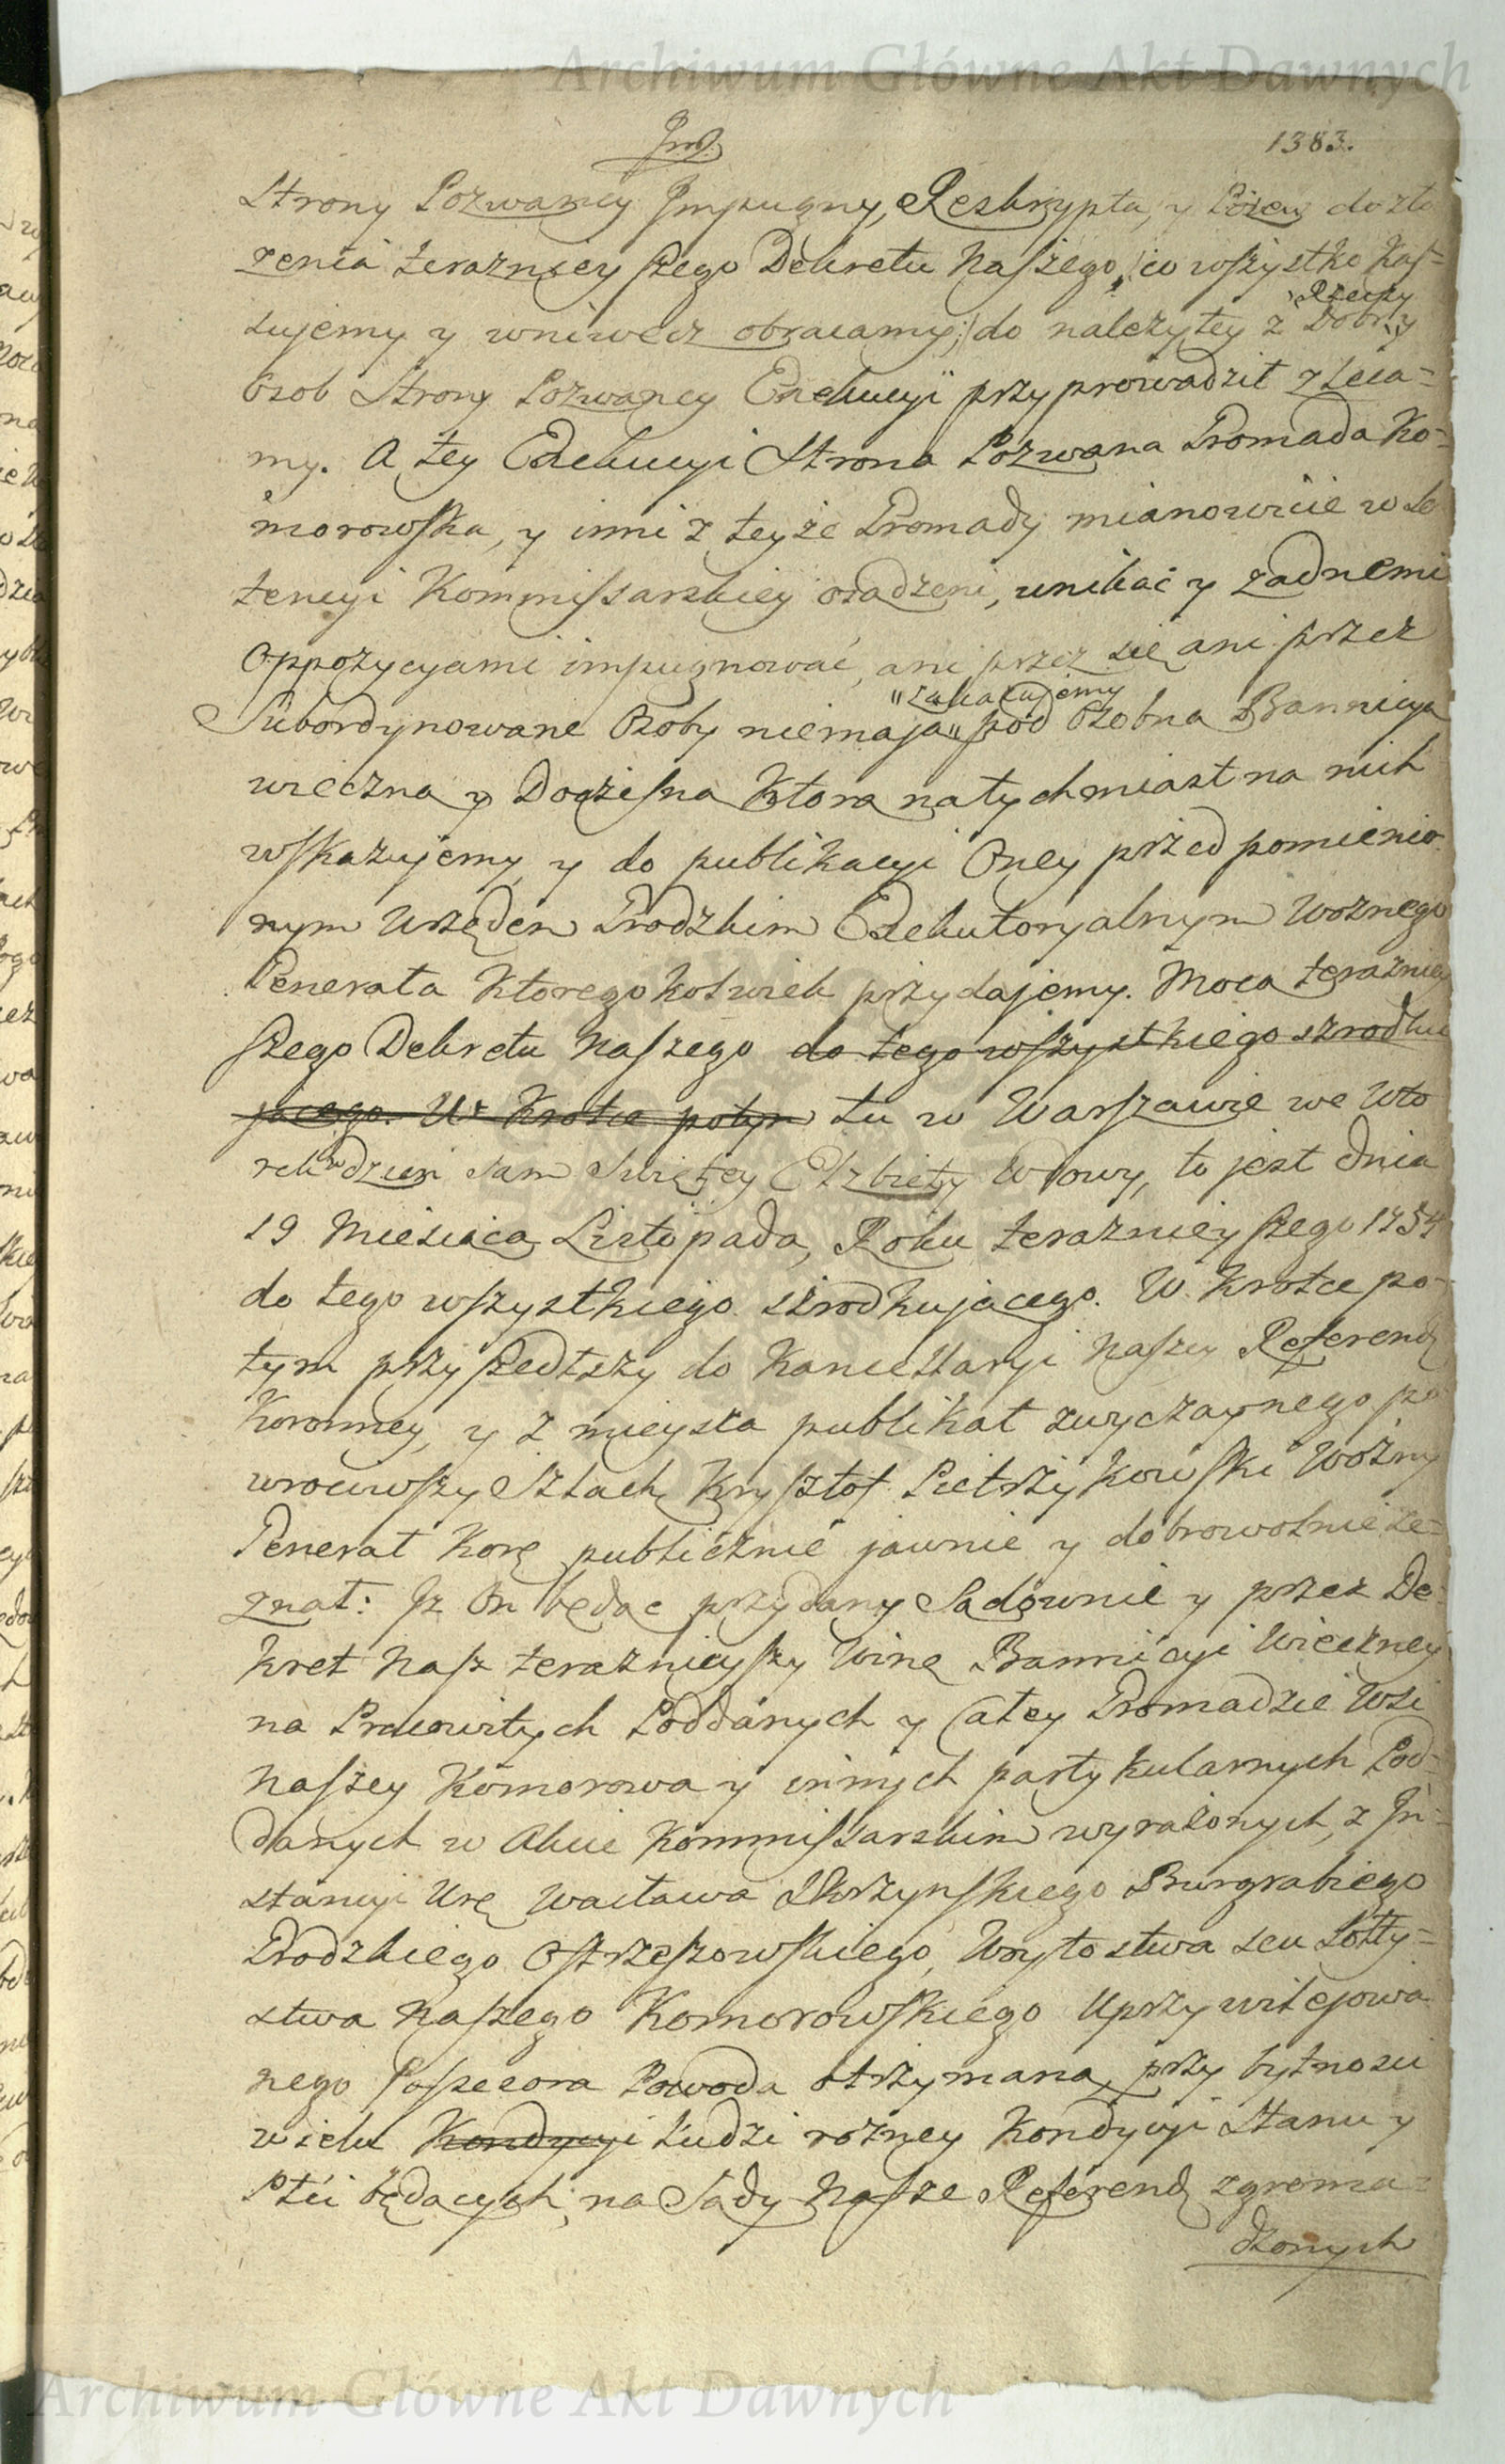 Archiwum Główne Akt Dawnych
1383.
Strony Pozwaney Impugny, Reskrypta, y Pozew do zło
zenia terazniey szego Dekretu Naszego, co wszystko Kas=
sujemy y wniwecz obracamy;) do nalezytey z Dobr y
Rzeczy
Osob Strony Pozwaney Exekucyi przyprowadzit zleca=
my. A tey Exekucyi Strona Pozwana Gromada Ko=
morowska, y inni z teyże Gromady mianowicie w Se
tencyi Kommissarskiey osadzeni, unikać y zadnemi
Oppozycyami impugnować, ani przez się ani przez
Subordynowane Osoby niemaja „ pod Osobna Bannicya
„zakazujemy
wieczna y Doczesna Ktora natychmiast na nich
wskazujemy, y do publikacyi Oney przed pomienio
nym Urzędem Grodzkim Exekutoryalnym Woznego
Generała Ktorego kolwiek przydajemy. Moca teraznie
szego Dekretu Naszego do tego wszystkiego szrodku
jacego. W Krotce potym tu w Warszawie we Wto
rek w dzien Sam Swiętey Elzbiety Wdowy, to jest dnia
19 Miesiaca Listopada, Roku terazniey szego 1754
do tego wszystkiego szrodkujacego. W Krotce po=
tym przyszedłszy do Kancellaryi Naszey Referend
Koronney, y z mieysca publikat zwyczaynego po
wrociwszy Szlach Krysztof Pietrzykowski Wozny
Generał Korę publicznie jawnie y dobrowolnie ze=
znał: Iz On będac przydany Sądownie y przez De=
kret Nasz teraznieyszy Winę Bannicyi Wieczney
na Pracowitych Poddanych y Całey Gromadzie Wsi
Naszey Komorowa y innych partykularnych Pod=
danych w Akcie Kommissarskim wyrażonych, z In=
stancyi Urę Wacława Skrzynskiego Burgrabiego
Grodzkiego Ostrzeszowskiego, Woytostwa seu Sołty=
stwa Naszego Komorowskiego Uprzywilejowa
nego Possesora Powoda otrzymaną, przy bytnosci
wielu Kondycyi Ludzi rozney Kondycyi Stanu y
Płci będacych, na Sądy Nasze Referend zgroma=
dzonych
Archiwum Główne Akt Dawnych